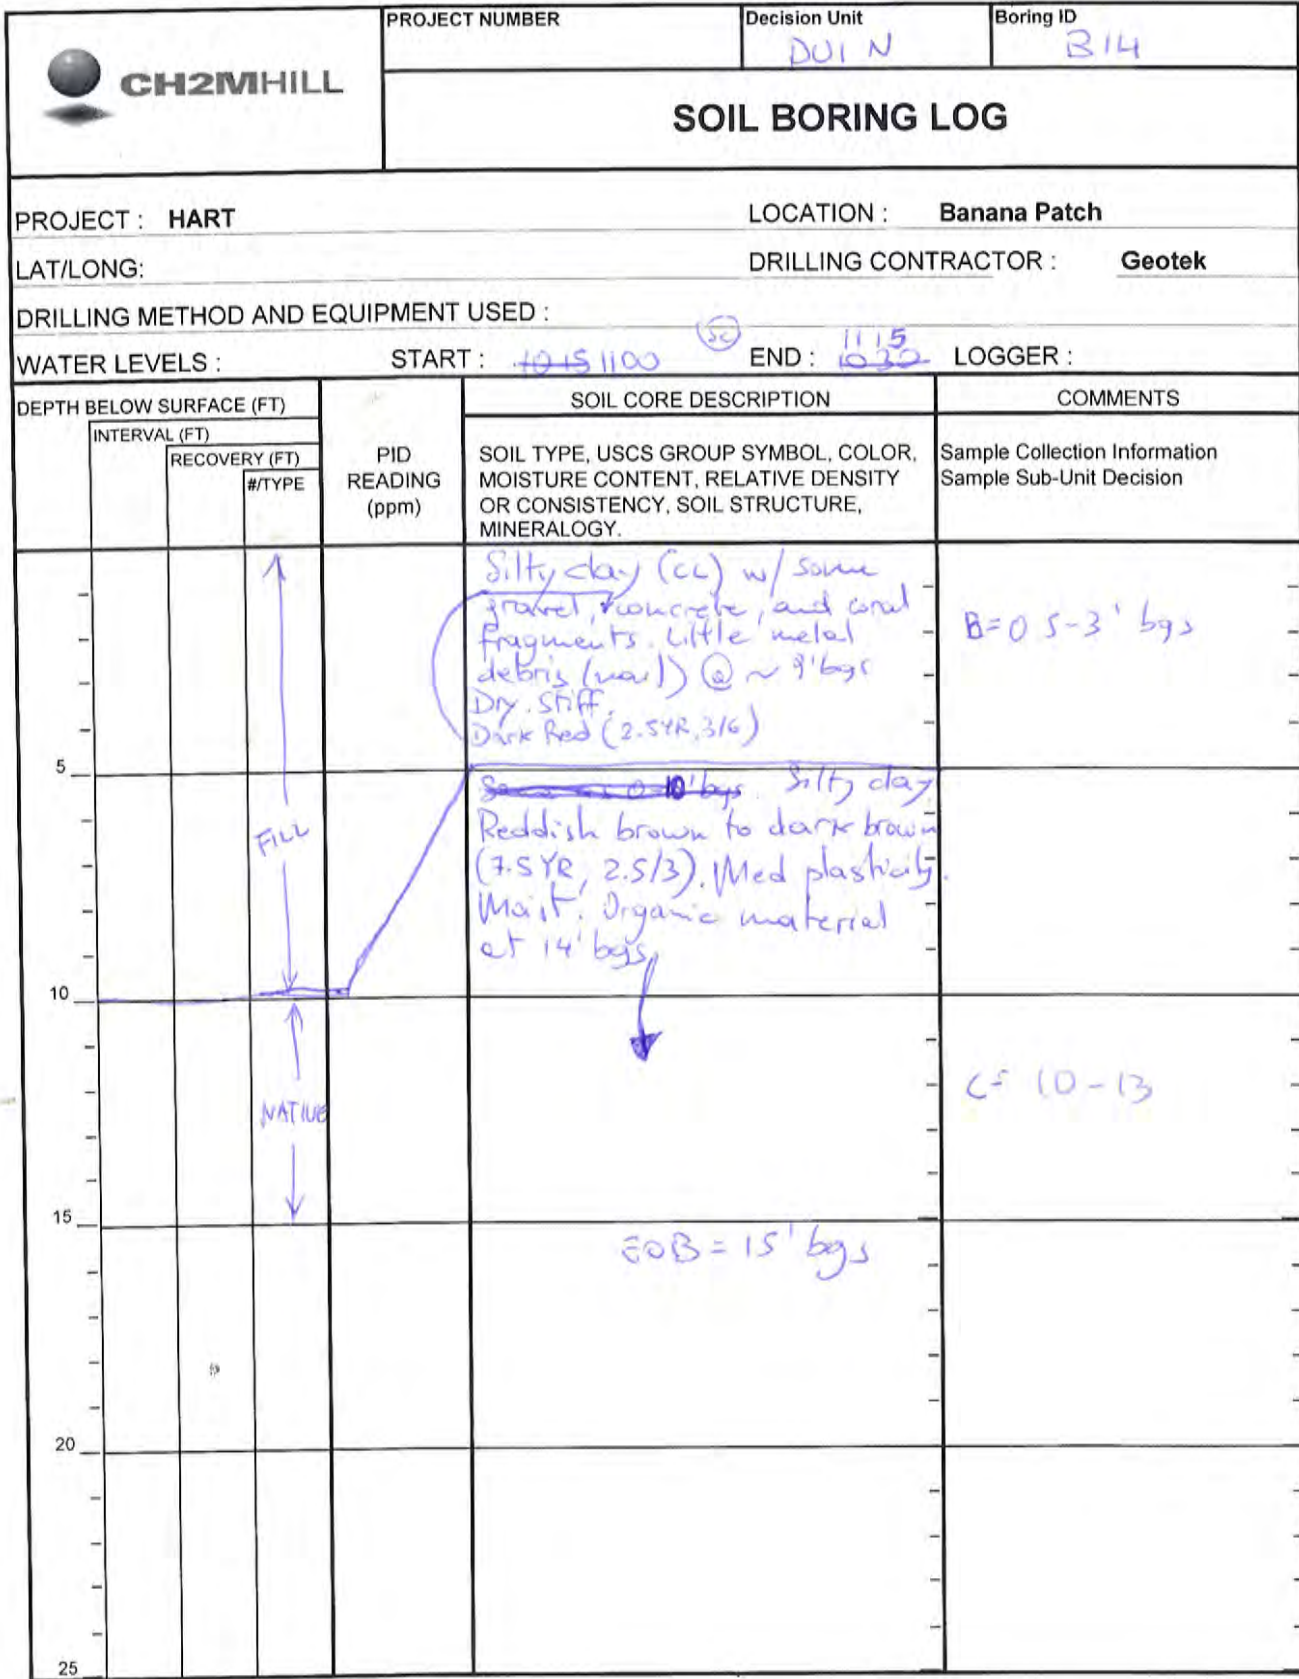 CH2MHILL
PROJECT NUMBER
Decision Unit
DU1 N
Boring ID
B14
SOIL BORING LOG
PROJECT : HART
LOCATION : Banana Patch
LAT/LONG:
DRILLING CONTRACTOR : Geotek
DRILLING METHOD AND EQUIPMENT USED :
WATER LEVELS :
START : 1015 1100
END : 1030 1115
LOGGER :
DEPTH BELOW SURFACE (FT)
INTERVAL (FT)
RECOVERY (FT)
#/TYPE
PID
READING
(ppm)
SOIL CORE DESCRIPTION
SOIL TYPE, USCS GROUP SYMBOL, COLOR,
MOISTURE CONTENT, RELATIVE DENSITY
OR CONSISTENCY, SOIL STRUCTURE,
MINERALOGY.
COMMENTS
Sample Collection Information
Sample Sub-Unit Decision
Silty clay (CL) w/ some
gravel, concrete, and coral
fragments. Little metal
debris (nail) @ ~ 9' bgs
Dry. Stiff.
Dark Red (2.5YR, 3/6)
B=0.5-3' bgs
5
0-10' bgs. Silty clay
Reddish brown to dark brown
(7.5 YR, 2.5/3). Med plasticity.
Moist. Organic material
at 14' bgs
FILL
10
NATIVE
C= 10-13
15
EOB = 15' bgs
20
25